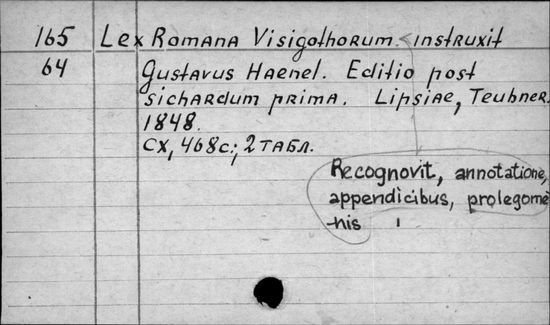 165 Lex Romana Visigothorum instruxit
64 Gustavus Haenel. Editio post
sichardum prima. Lipsiae, Teubner.
1848.
CX, 468c.; 2 табл.
Recognovit, annotatione,
appendicibus, prolegome
-nis